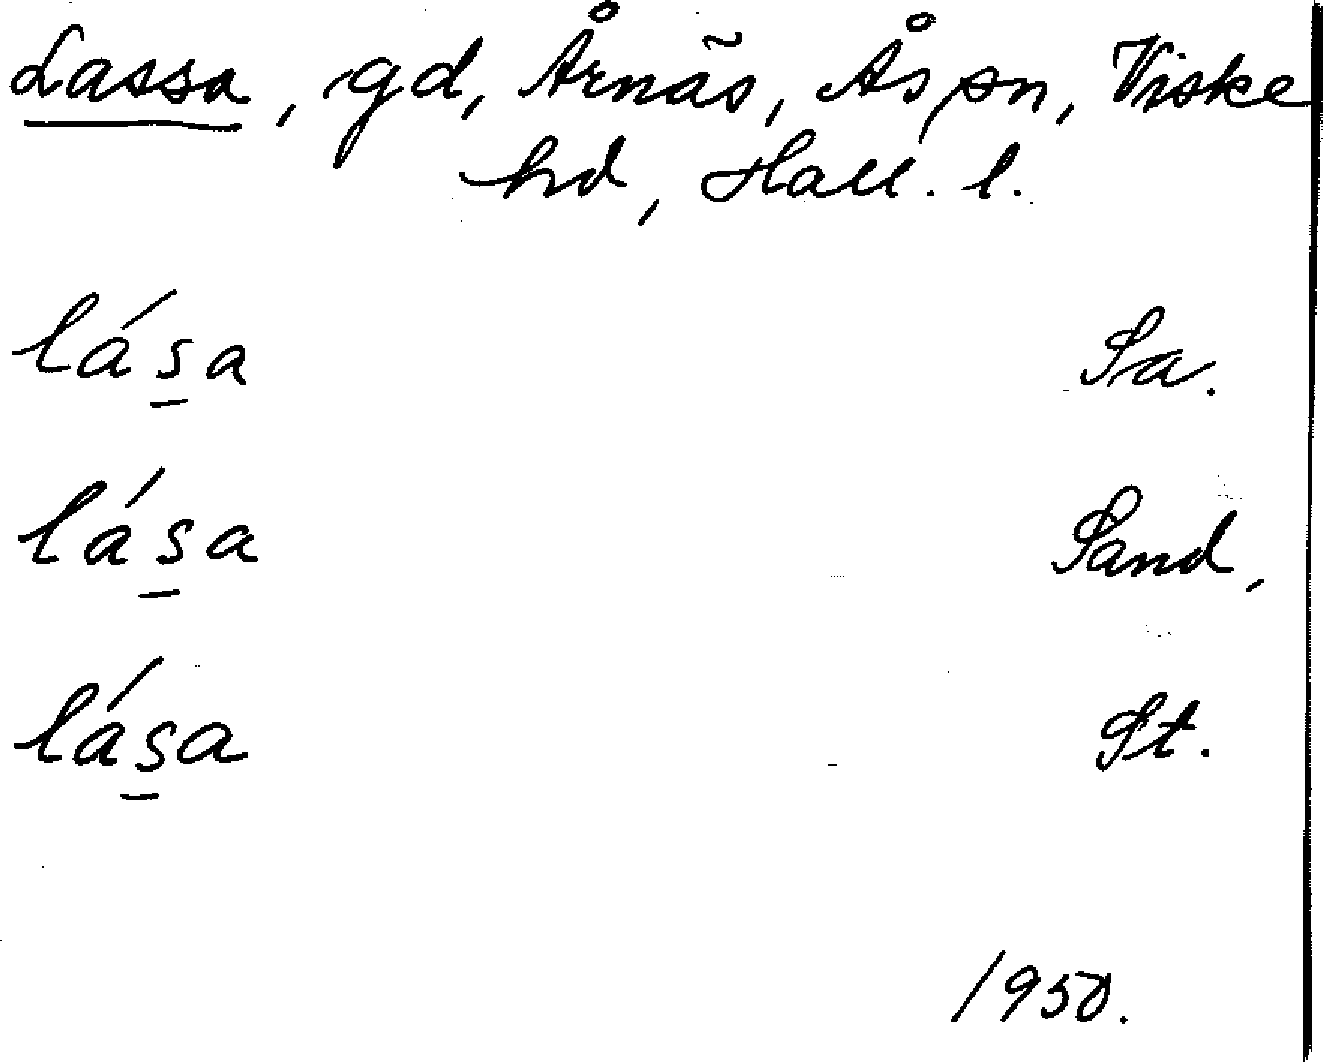 Lassa, gd, Årnäs, Ås sn, Viske
hd, Hall. l.
lás̱a Sa.
lás̱a Sand,
lás̱a St.
1950.